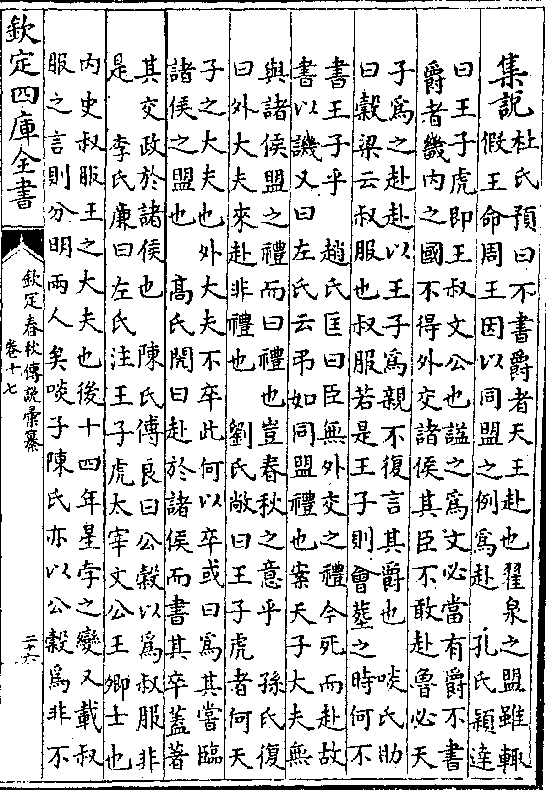 集說
杜氏預曰不書爵者天王赴也翟泉之盟雖輒
假王命周王因以同盟之例為赴　孔氏穎達
曰王子虎即王叔文公也諡之為文必當有爵不書
爵者畿內之國不得外交諸侯其臣不敢赴魯必天
子為之赴赴以王子為親不復言其爵也　啖氏助
曰穀梁云叔服也叔服若是王子則會葬之時何不
書王子乎　趙氏匡曰臣無外交之禮今死而赴故
書以譏又曰左氏云弔如同盟禮也案天子大夫無
與諸侯盟之禮而曰禮也豈春秋之意乎　孫氏復
曰外大夫來赴非禮也　劉氏敞曰王子虎者何天
子之大夫也外大夫不卒此何以卒或曰為其嘗臨
諸侯之盟也　高氏閌曰赴於諸侯而書其卒蓋著
其交政於諸侯也　陳氏傅良曰公穀以為叔服非
是　李氏廉曰左氏注王子虎太宰文公王卿士也
內史叔服王之大夫也後十四年星孛之變又載叔
服之言則分明兩人矣啖子陳氏亦以公穀為非不
欽定四庫全書
欽定春秋傳說彙纂
卷十七
二十六